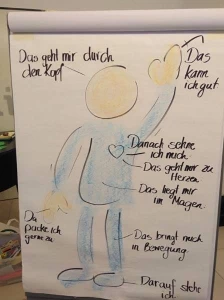 Das geht mir durch
den Kopf
Das
kann
ich gut
Danach sehne
ich mich
Das geht mir zu
Herzen
Das liegt mir
im Magen
Da
packe ich
gerne zu
Das bringt mich
in Bewegung
Darauf stehe
ich